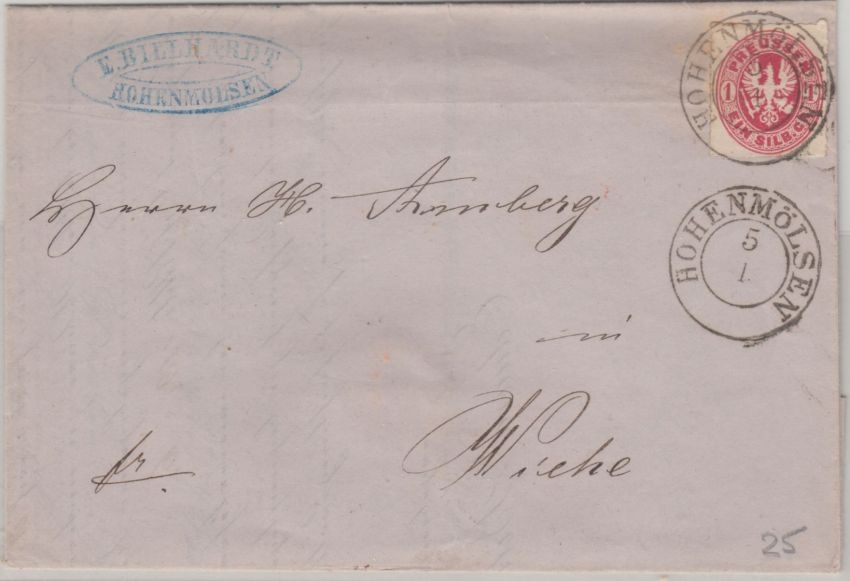 E. BILLHARDT
HOHENMÖLSEN
HOHENMÖLSEN
PREUSSEN
1
EIN SILB. GR.
Herrn H. Arnberg
HOHENMÖLSEN
5
1.
in
Wiehe
fr.
25